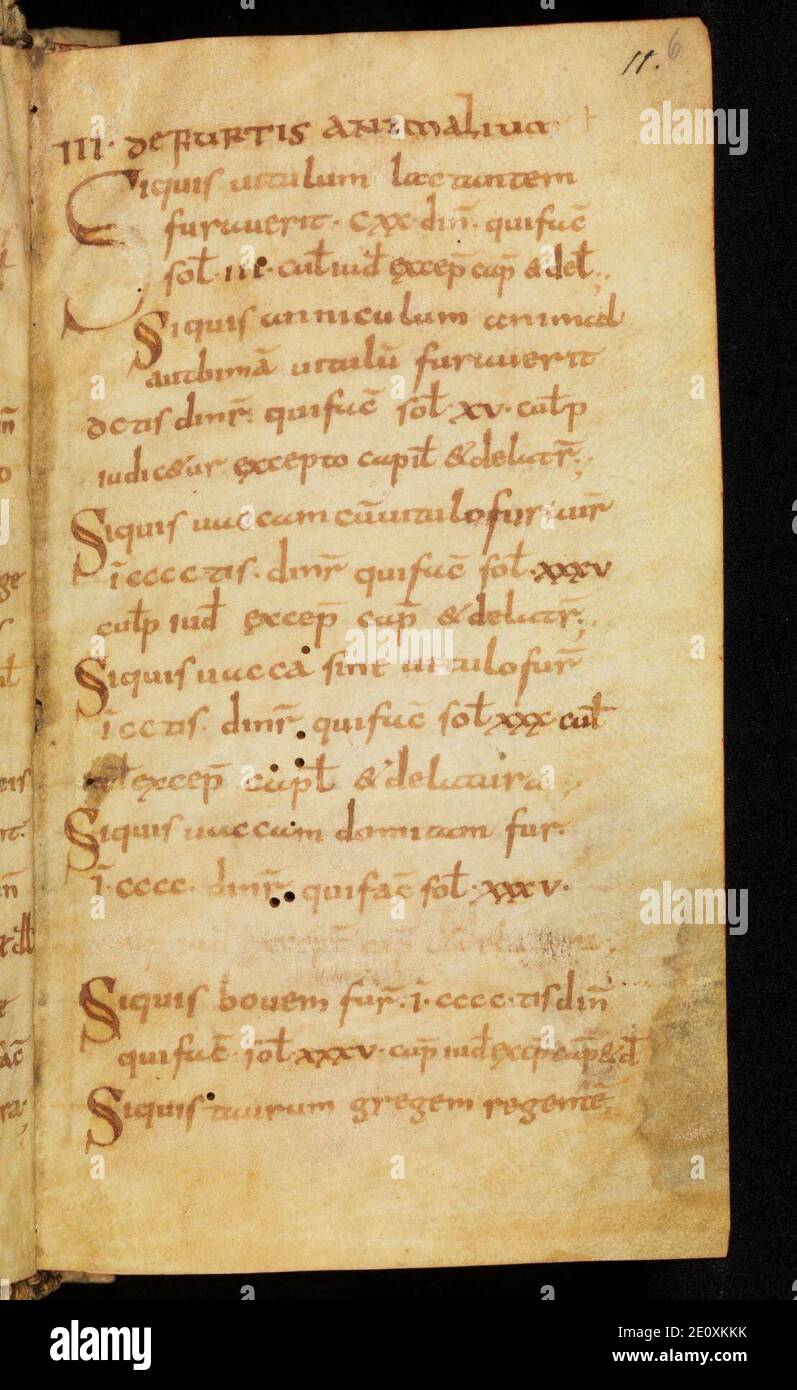 11. 6
III. DE FURTIS ANIMALIUM
Siquis uitulum lactantem
furauerit· cxx· din̄· quifac̄
sol̄· III· cul̄ iud̄ excep̄ cap̄ & del̄;
Siquis anniculum animal
aut bimū uitulū furauerit
dctis dinr̄· quifac̄ sol̄ xv· cul̄p
iudicetur excepto capit̄ & delatr̄;
Siquis uaccam cū uitulo furauer̄
ī cccc tis· dinr̄ quifac̄ sol̄ xxxv
cul̄p iud̄ excep̄ cap̄ & delatr̄;
Siquis uacca sine uitulo fur̄
ī cc tis· dinr̄ quifac̄ sol̄ xxx cul̄
excep̄ capl̄ & delatura
Siquis uaccam domitam fur·
ī· cccc· dinr̄ quifac̄ sol̄· xxxv·
Siquis bouem fur̄· ī· cccc· tis din̄
quifac̄ sol̄· xxxv· cap̄ iud̄ excep̄ cap̄ & d̄
Siquis taurum gregem regentē
alamy
Image ID: 2E0XKKK
www.alamy.com